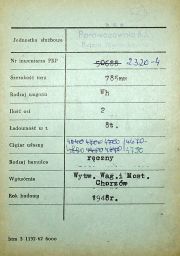 Jednostka służbowa
Parowozownia kl.
Nr inwentarza PKP 50688 2320-4
Szerokość toru 785mm
Rodzaj wagonu Wh
Ilość osi 2
Ładowność w t. 8t.
Ciężar własny
Rodzaj hamulca ręczny
Wytwórnia Wytw. Wag. i Most.
Chorzów
Rok budowy 1948r.